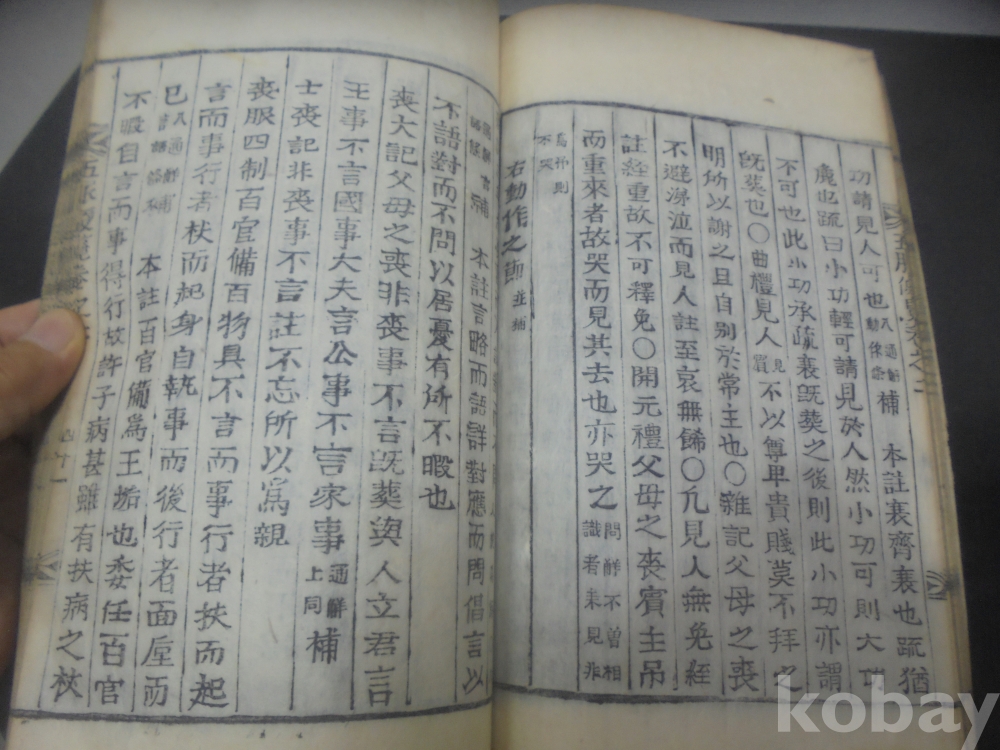 功請見人可也 補 本註衰齊衰也疏猶
麄也疏曰小功輕可請見於人然小功可則大功
不可也此小功承疏衰旣葬之後則此小功亦謂
旣葬也〇曲禮見人 不以尊卑貴賤莫不拜之
明所以謝之且自别於常主也〇雜記父母之喪
不避涕泣而見人註至哀無餙〇凢見人無免絰
註絰重故不可釋免〇開元禮父母之喪賓主吊
而重來者故哭而見其去也亦哭之 問觧不曽相識者未見非
則不哭
右動作之節 並補
本註言略而語詳對應而問倡言以
不語對而不問以居憂有所不暇也
喪大記父母之喪非喪事不言旣葬與人立君言
王事不言國事大夫言公事不言家事 通觧上同 補
士喪記非喪事不言註不忘所以爲親
喪服四制百官備百物具不言而事行者扶而起
言而事行者杖而起身自執事而後行者面垢而
已 本註百官備爲王垢也委任百官
不暇自言而事得行故許子病甚雖有扶病之杖
kobay